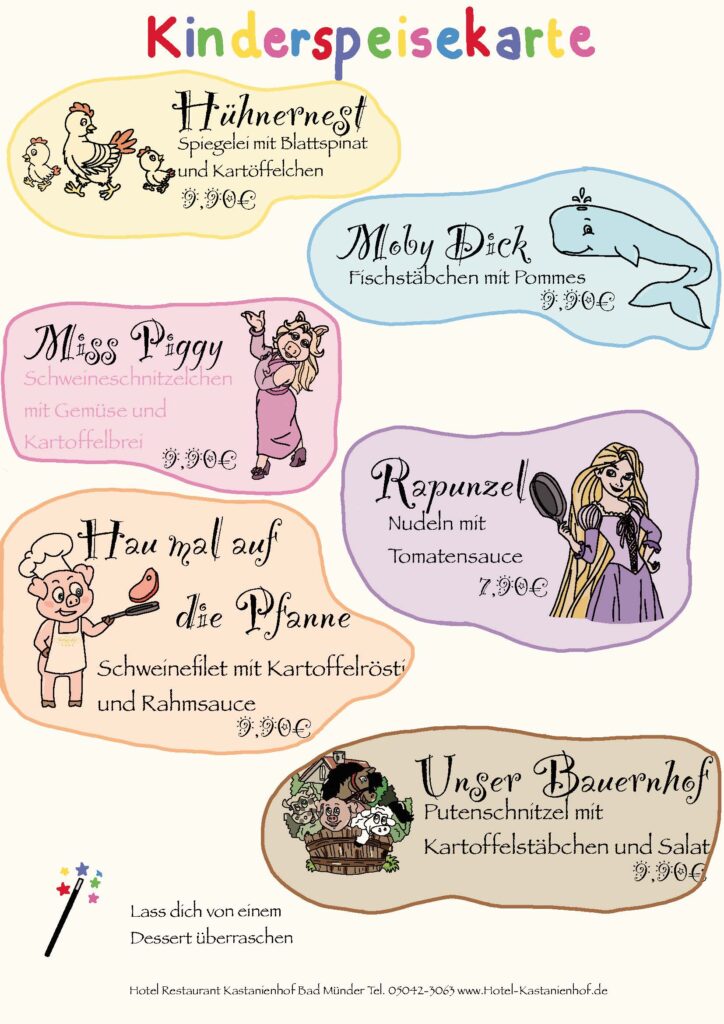 Kinderspeisekarte
Hühnernest
Spiegelei mit Blattspinat
und Kartöffelchen
9,90€
Moby Dick
Fischstäbchen mit Pommes
9,90€
Miss Piggy
Schweineschnitzelchen
mit Gemüse und
Kartoffelbrei
9,90€
Rapunzel
Nudeln mit
Tomatensauce
7,90€
Hau mal auf
die Pfanne
Schweinefilet mit Kartoffelrösti
und Rahmsauce
9,90€
Unser Bauernhof
Putenschnitzel mit
Kartoffelstäbchen und Salat
9,90€
Lass dich von einem
Dessert überraschen
Hotel Restaurant Kastanienhof Bad Münder Tel. 05042-3063 www.Hotel-Kastanienhof.de